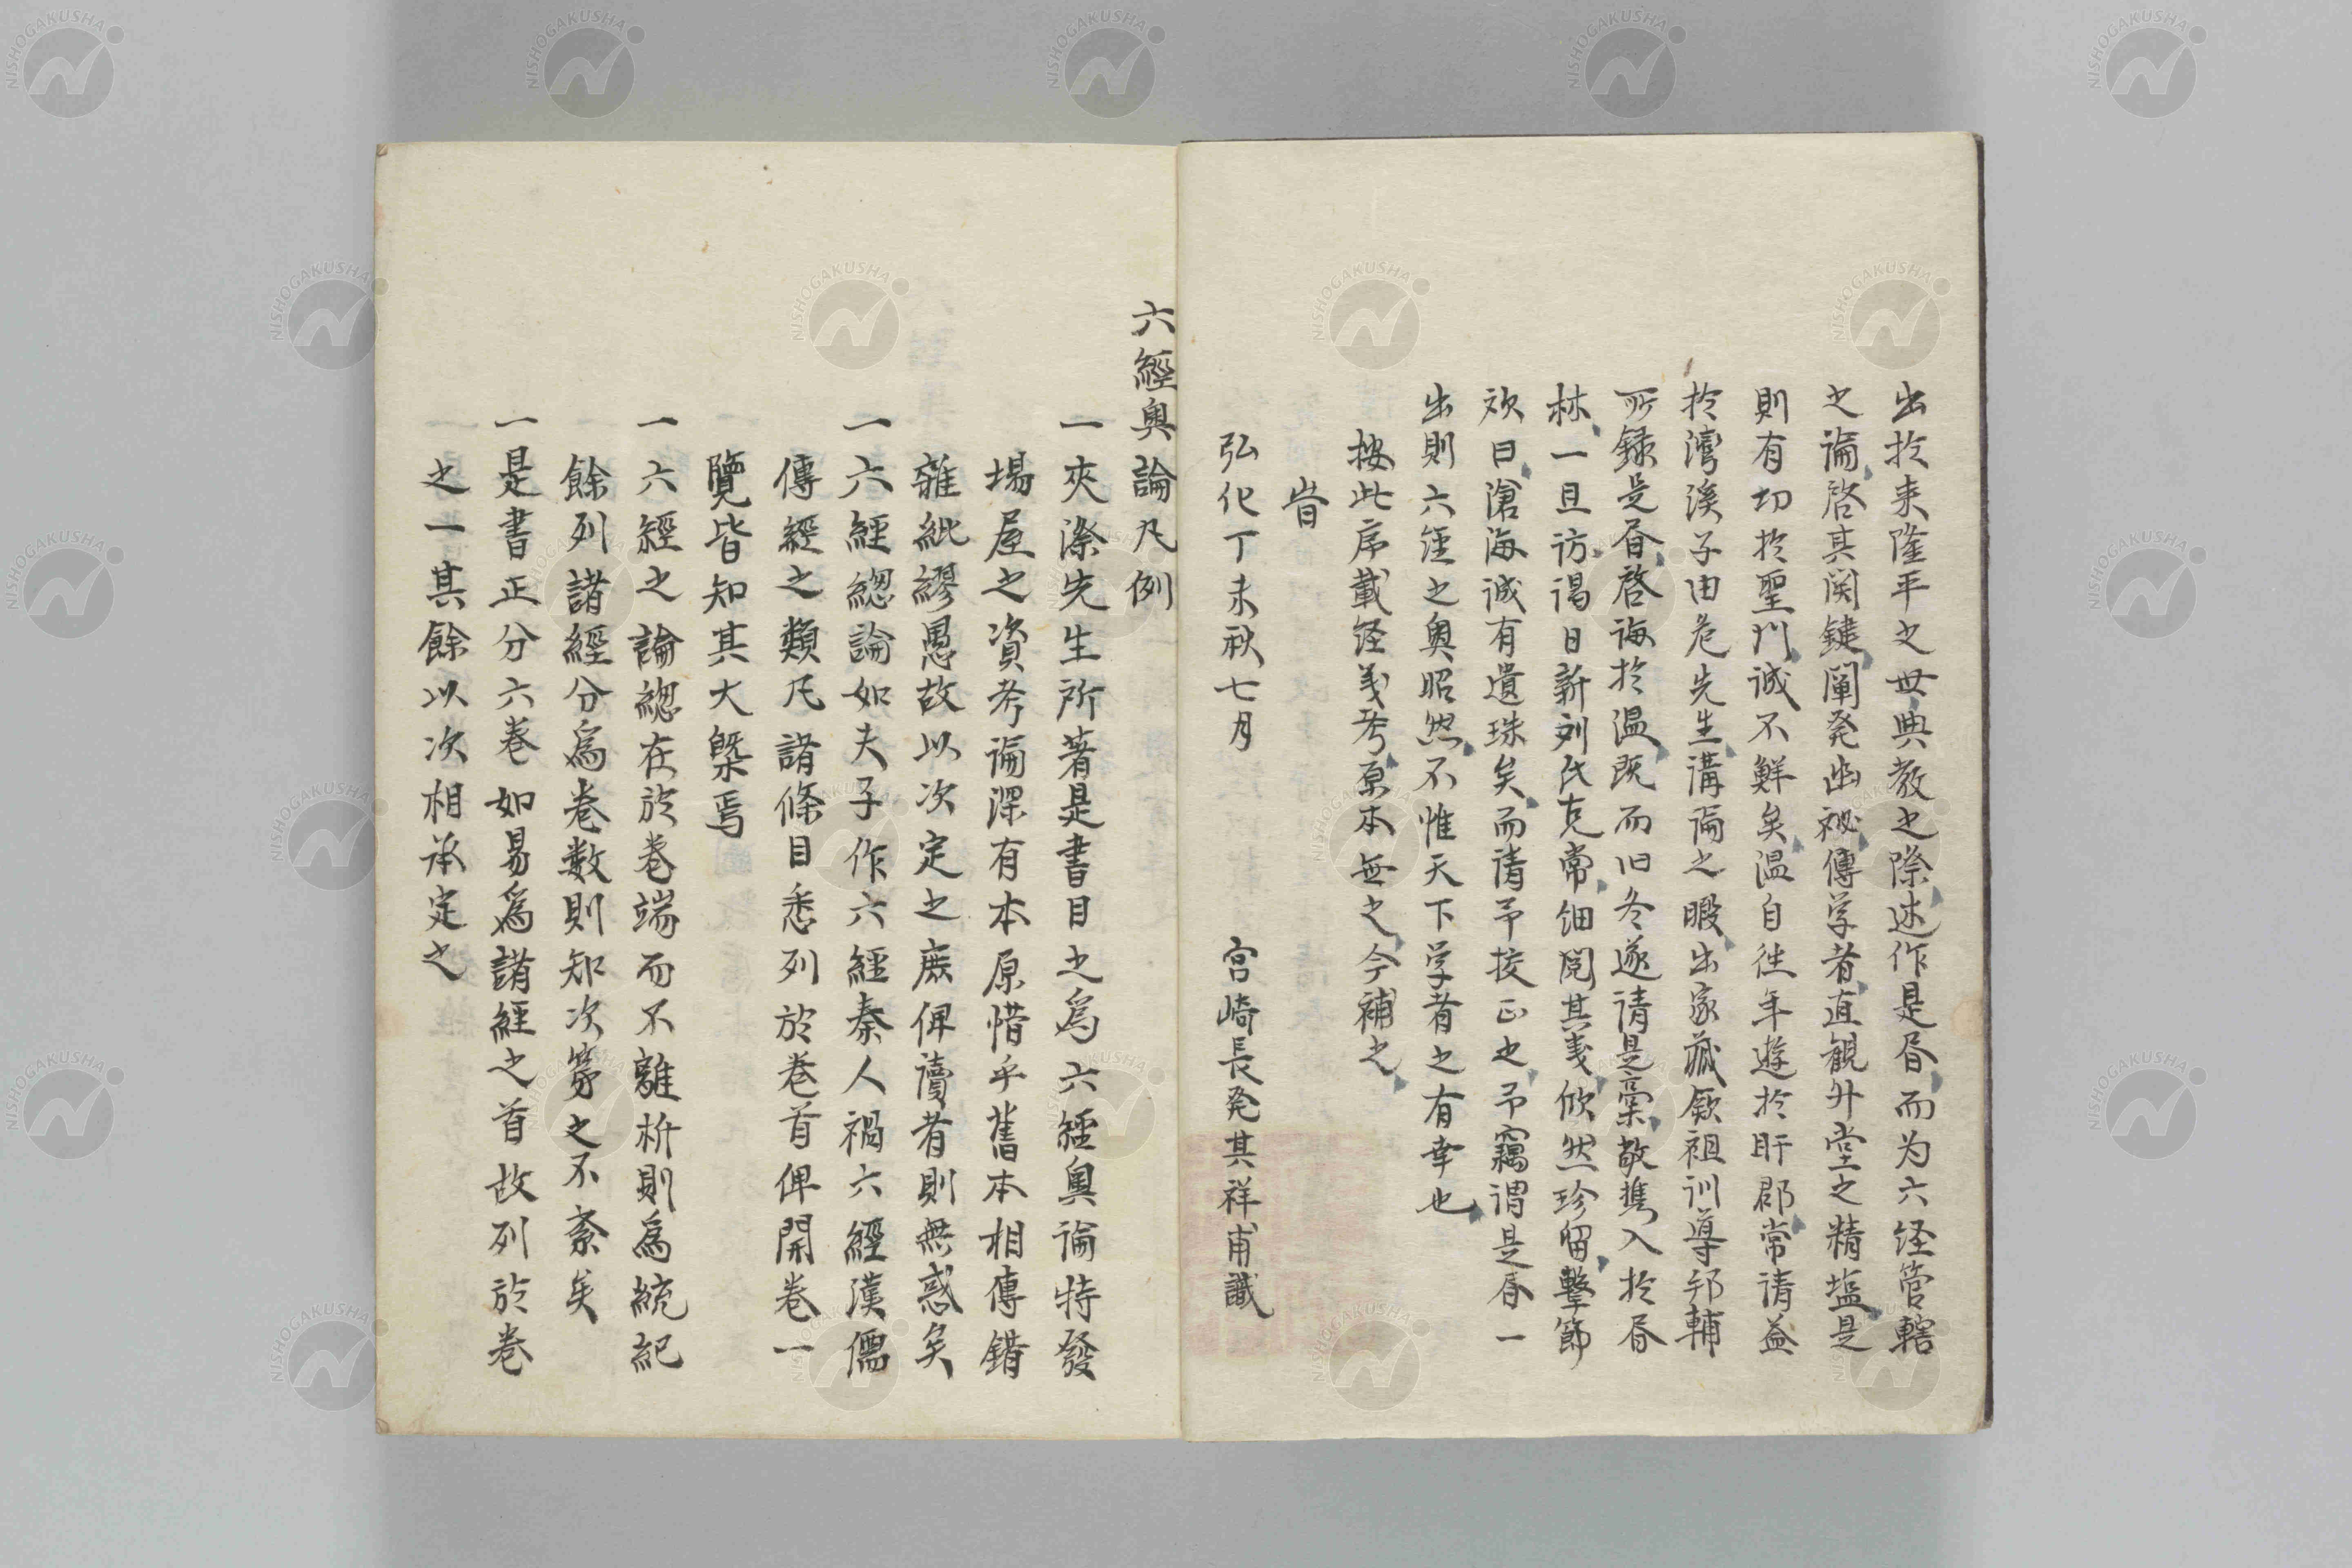 出於未隆平之世典教之際述作是昏而为六经管轄
之論啓其関鍵闡発幽祕傳学者直観升堂之精塩是
則有切於聖門誠不鮮矣温自徃年遊於盱郡常请益
於灣溪子由危先生講論之暇出家藏欽祖训導邦輔
所録是昏啓诲於温既而旧冬遂请是稾敬携入於昏
林一旦访谒日新刘氏克常细閲其義欣然珍留擊節
欤曰滄海誠有遺珠矣而请予挍正之予竊谓是昏一
出則六经之奥昭然不惟天下学者之有幸也
按此序載经義考原本無之今補之
旹
弘化丁未秋七月　宮崎長発其祥甫識
六經奥論凡例
一夾漈先生所著是書目之爲六經奥論特發
場屋之資考論深有本原惜乎舊本相傳錯
雜紕繆愚故以次定之庶俾讀者則無惑矣
一六經總論如夫子作六經秦人禍六經漢儒
傳經之類凡諸條目悉列於卷首俾開卷一
覽皆知其大槩焉
一六經之論總在於卷端而不離析則爲統紀
餘列諸經分爲卷數則知次第之不紊矣
一是書正分六卷如易爲諸經之首故列於卷
之一其餘以次相承定之
NISHOGAKUSHA